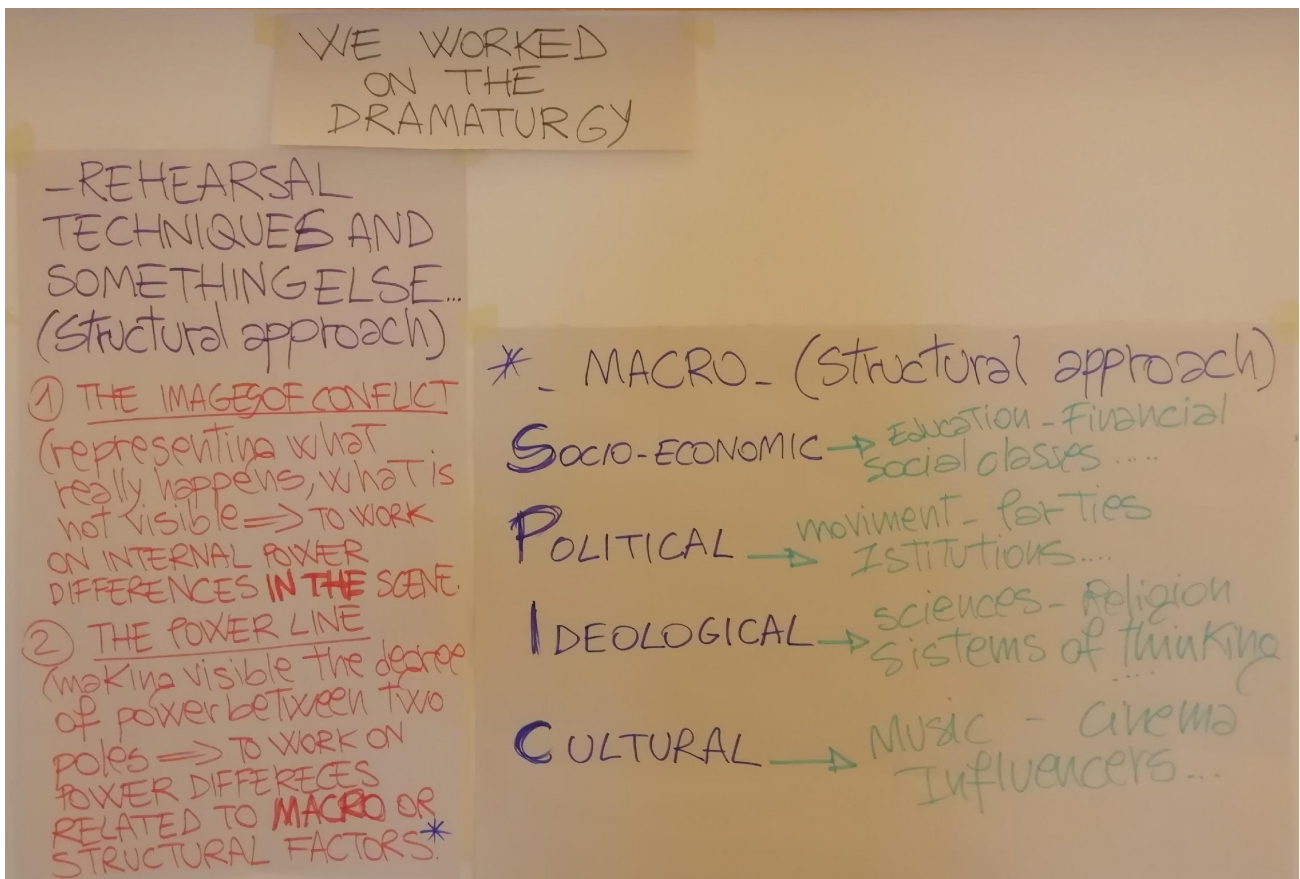 WE WORKED
ON THE
DRAMATURGY
-REHEARSAL
TECHNIQUES AND
SOMETHING ELSE...
(structural approach)
1 THE IMAGES OF CONFLICT
(representing what
really happens, what is
not visible => TO WORK
ON INTERNAL POWER
DIFFERENCES IN THE SCENE.
2 THE POWER LINE
(making visible the degree
of power between two
poles => TO WORK ON
POWER DIFFERECES
RELATED TO MACRO OR
STRUCTURAL FACTORS.*
*_ MACRO_ (structural approach)
SOCIO-ECONOMIC → Education - Financial
social classes .....
POLITICAL → moviment - Parties
Istitutions....
IDEOLOGICAL → sciences - Religion
sistems of thinking
....
CULTURAL → Music - Cinema
Influencers...